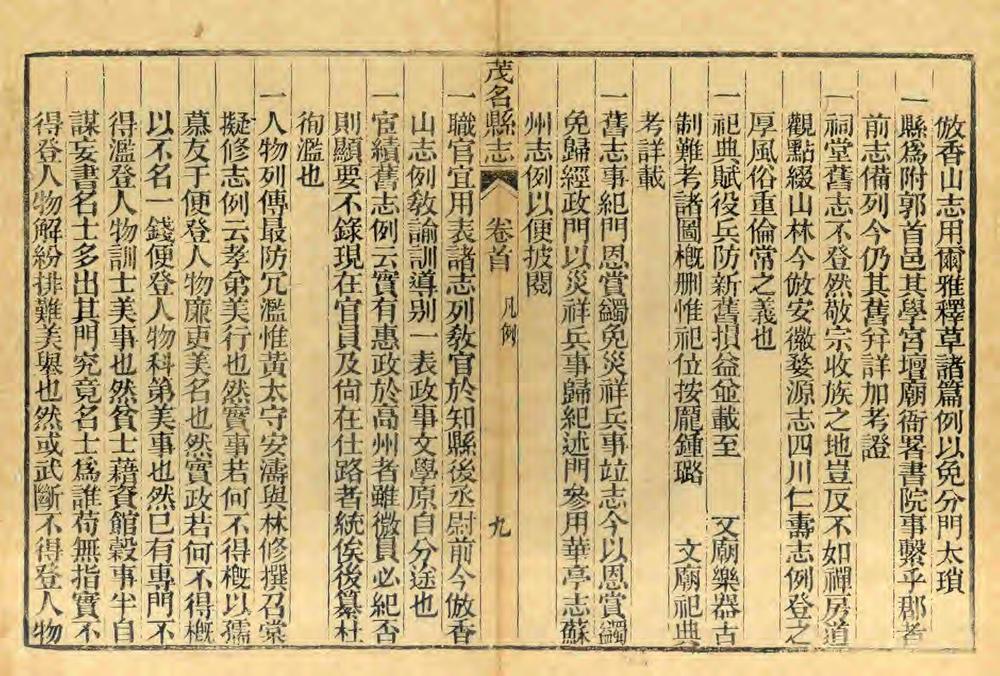 倣香山志用爾雅釋草諸篇例以免分門太瑣
一縣爲附郭首邑其學宮壇廟衙署書院事繫乎郡者
前志備列今仍其舊幷詳加考證
一祠堂舊志不登然敬宗收族之地豈反不如禪房道
觀點綴山林今倣安徽婺源志四川仁壽志例登之
厚風俗重倫常之義也
一祀典賦役兵防新舊損益並載至　文廟樂器古
制難考諸圖槪删惟祀位按龎鍾璐　文廟祀典
考詳載
一舊志事紀門恩賞蠲免災祥兵事竝志今以恩賞蠲
免歸經政門以災祥兵事歸紀述門參用華亭志蘇
州志例以便披閱
茂名縣志　卷首　凡例　九
一職官宜用表諸志列敎官於知縣後丞尉前今倣香
山志例敎諭訓導別一表政事文學原自分途也
一宦績舊志例云實有惠政於高州者雖微員必紀否
則顯要不錄現在官員及尙在仕路者統俟後纂杜
徇濫也
一人物列傳最防冗濫惟黃太守安濤與林修撰召棠
擬修志例云孝弟美行也然實事若何不得槪以孺
慕友于便登人物廉吏美名也然實政若何不得槪
以不名一錢便登人物科第美事也然已有專門不
得濫登人物訓士美事也然貧士藉資館穀事半自
謀妄書名士多出其門究竟名士爲誰苟無指實不
得登人物解紛排難美舉也然或武斷不得登人物